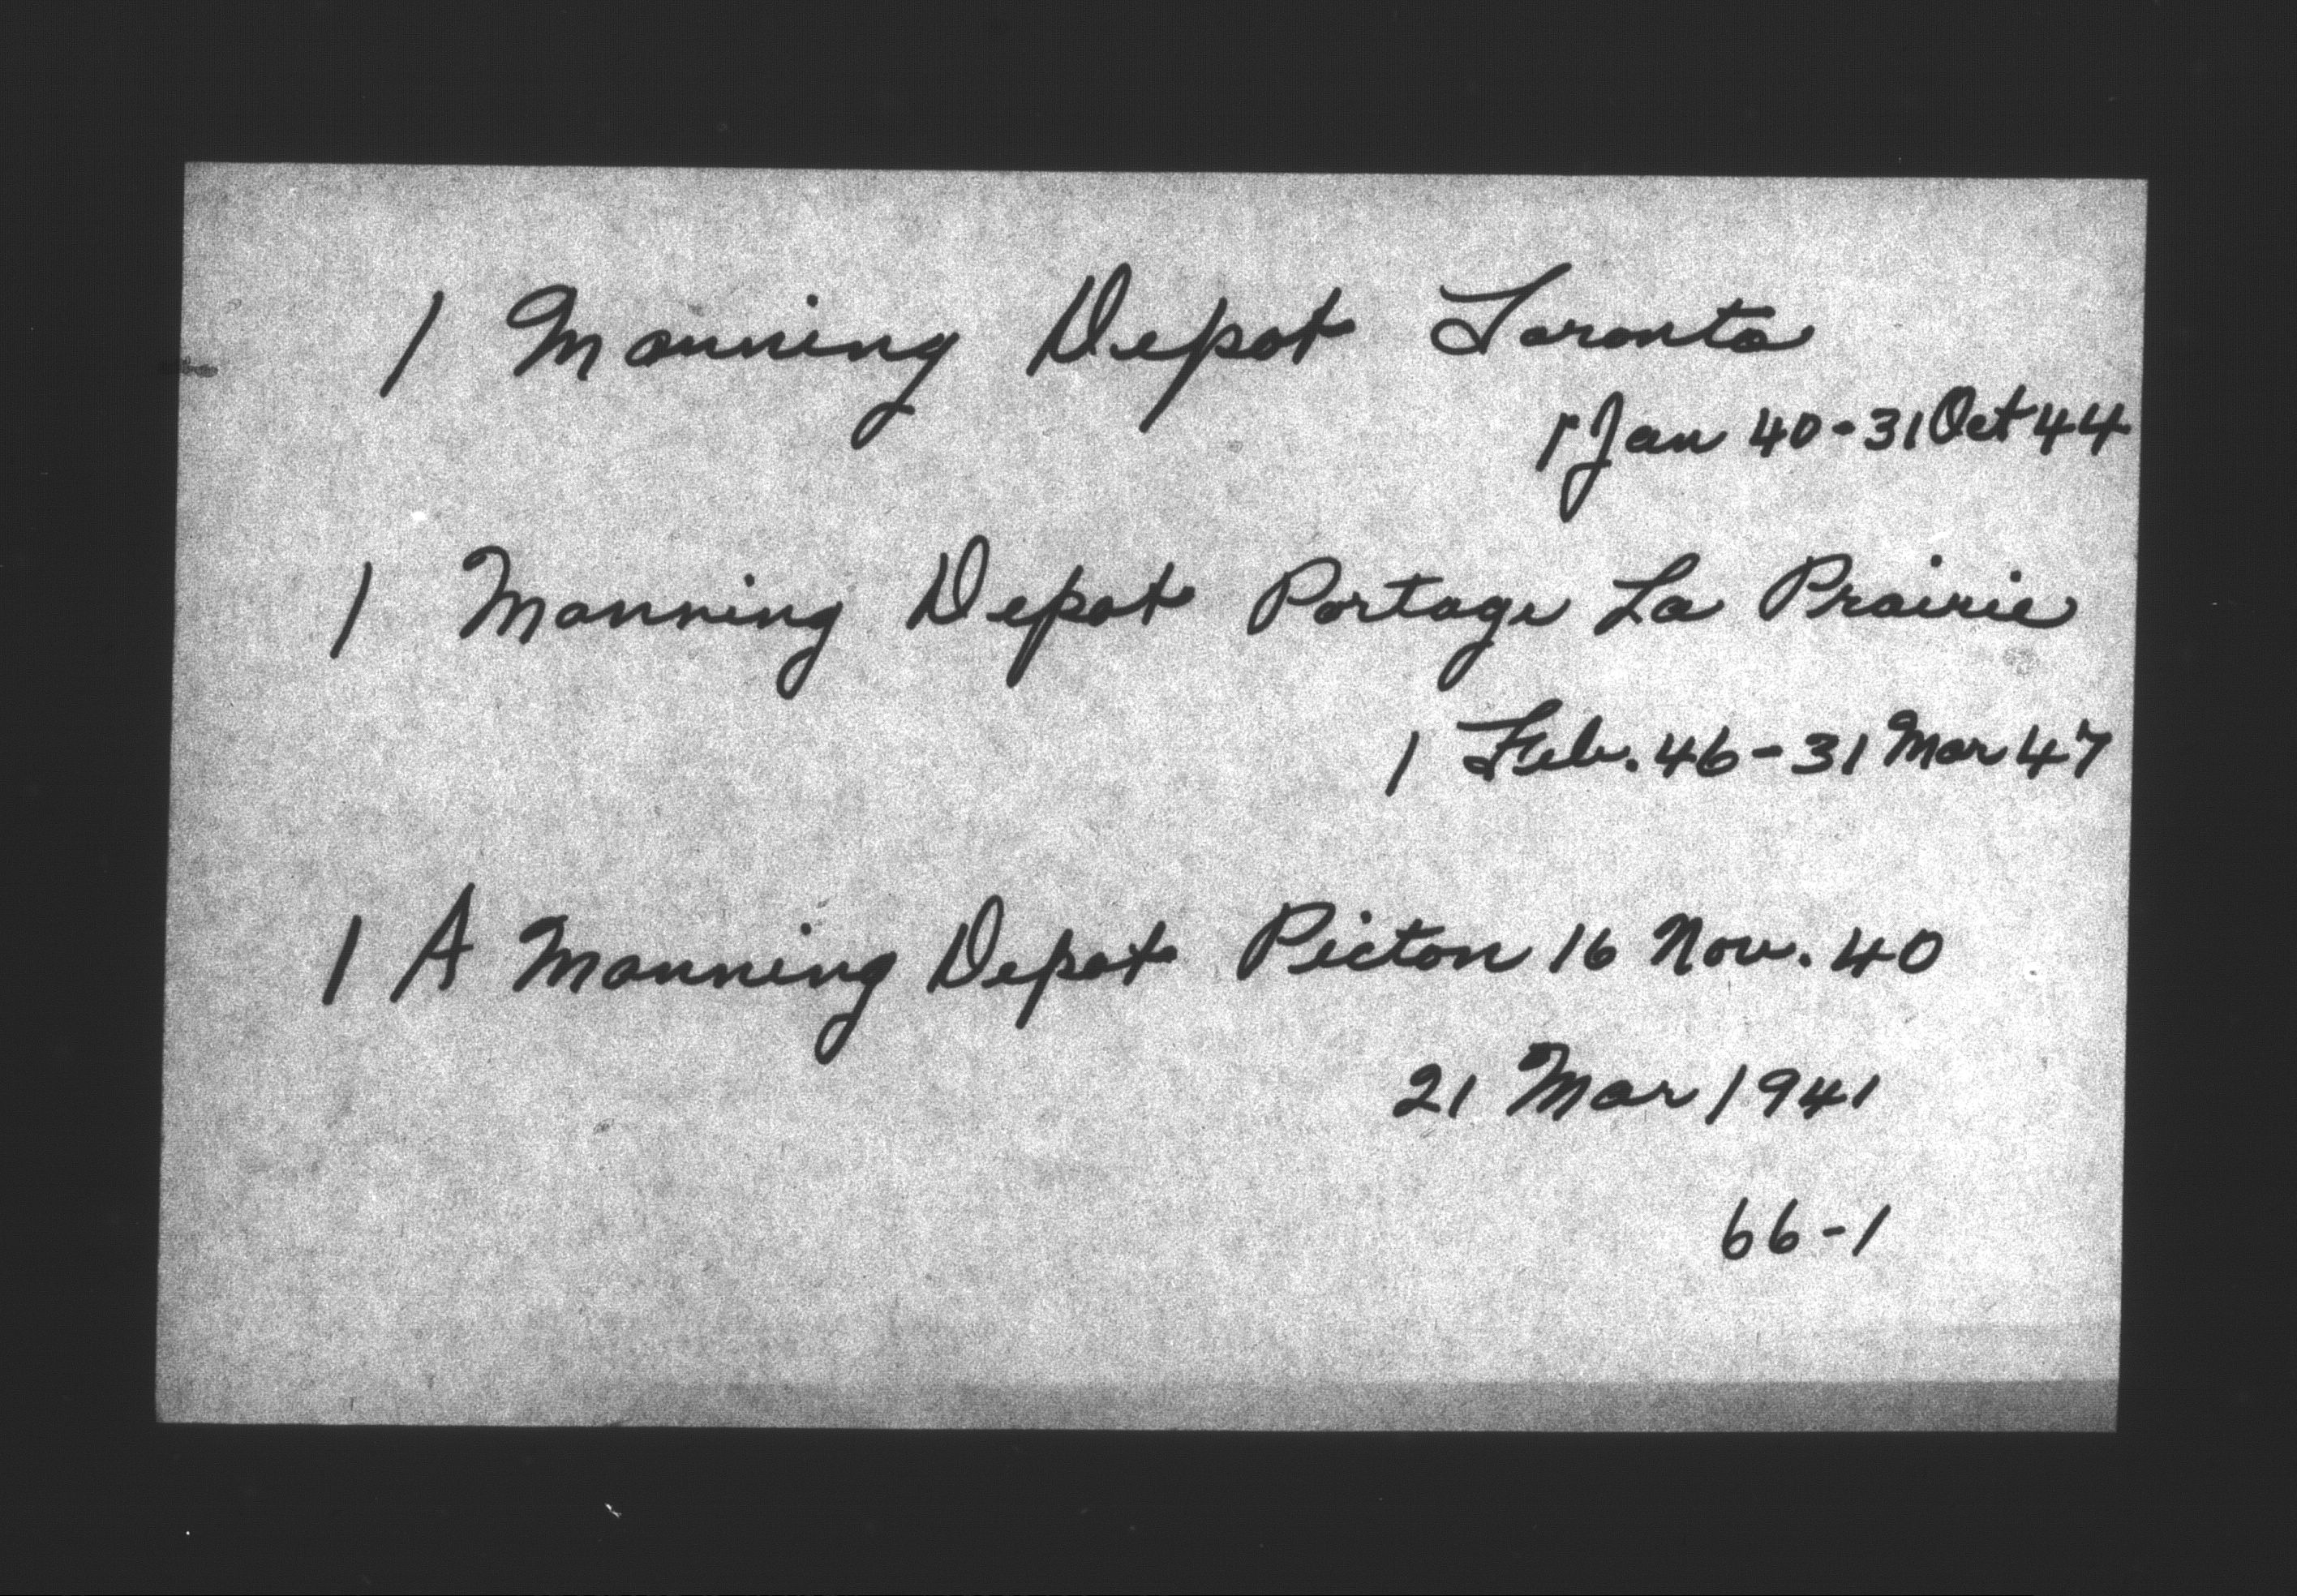 1 Manning Depot Toronto
1 Jan 40-31 Oct 44
1 Manning Depot Portage La Prairie
1 Feb. 46-31 Mar 47
1 A Manning Depot Picton 16 Nov. 40
21 Mar 1941
66-1